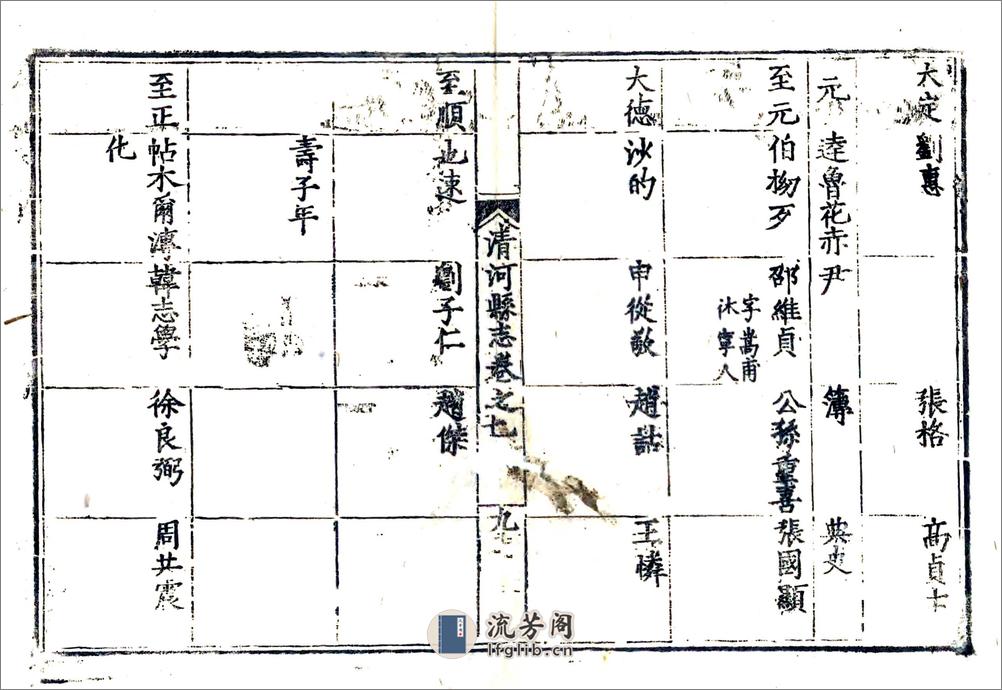 大定 劉惠 張格 高貞士
元 達魯花赤 尹 簿 典史
至元 伯 歹 邵維貞 字嵩甫 沐寧人 公孫重喜 張國顯
大德 沙的 申從敬 趙喆 王憐
清河縣志卷之七 九
至順 也速 劉子仁 趙傑
壽子年
至正 帖木爾 溥化 韓志學 徐良弼 周世震
流芳阁
lfglib.cn